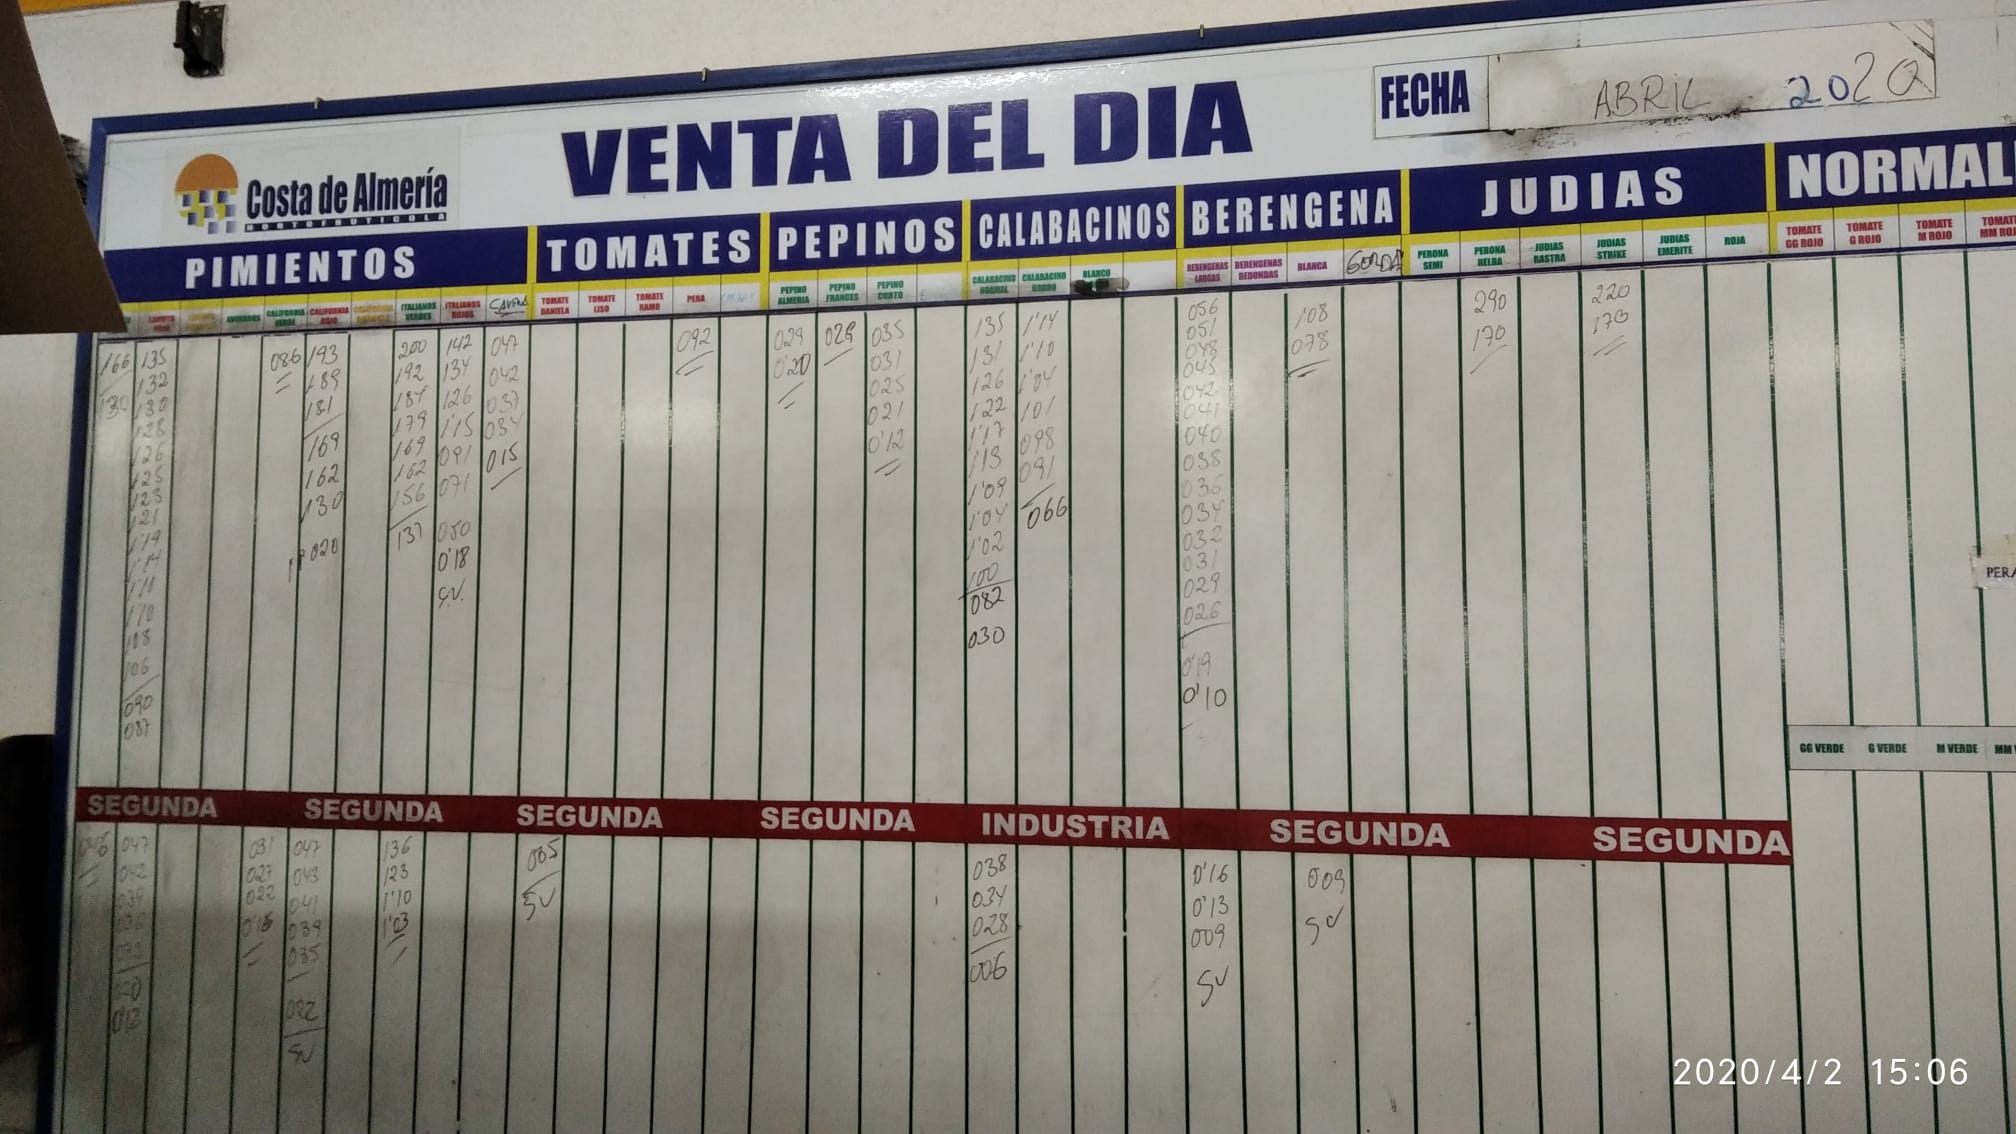 VENTA DEL DIA
FECHA ABRIL 2020
Costa de Almería
HORTOFRUTICOLA
PIMIENTOS TOMATES PEPINOS CALABACINOS BERENGENA JUDIAS NORMAL
CALIFORNIA VERDE
CALIFORNIA ROJO
ITALIANOS VERDES
ITALIANOS ROJOS
TOMATE DANIELA
TOMATE LISO
TOMATE RAMO
PERA
PEPINO ALMERIA
PEPINO FRANCES
PEPINO CORTO
CALABACINO NORMAL
CALABACINO GORDO
BLANCO
BERENGENAS LARGAS
BERENGENAS REDONDAS
BLANCA
GORDA
PERONA SEMI
PERONA HELDA
JUDIAS RASTRA
JUDIAS STRIKE
JUDIAS EMERITE
ROJA
TOMATE GG ROJO
TOMATE G ROJO
TOMATE M ROJO
166
130
135
132
130
128
126
125
123
121
1'19
1'14
1'11
1'10
108
106
090
087
086
193
189
181
169
162
130
020
200
192
187
179
169
162
156
137
142
134
126
1'15
091
071
050
0'18
S.V.
047
042
037
034
015
092
029
0'20
029
035
031
025
021
0'12
135
131
126
122
1'17
113
1'09
1'04
1'02
100
082
030
1'14
1'10
1'04
101
098
091
066
056
051
048
045
042
041
040
038
036
034
032
031
029
026
0'19
0'10
108
078
290
170
220
170
PERA
GG VERDE G VERDE M VERDE
SEGUNDA SEGUNDA SEGUNDA SEGUNDA INDUSTRIA SEGUNDA SEGUNDA
047
042
039
036
031
027
022
047
043
041
039
035
022
SV
136
123
1'10
1'03
005
SV
038
034
028
006
0'16
0'13
009
SV
009
SV
2020/4/2 15:06